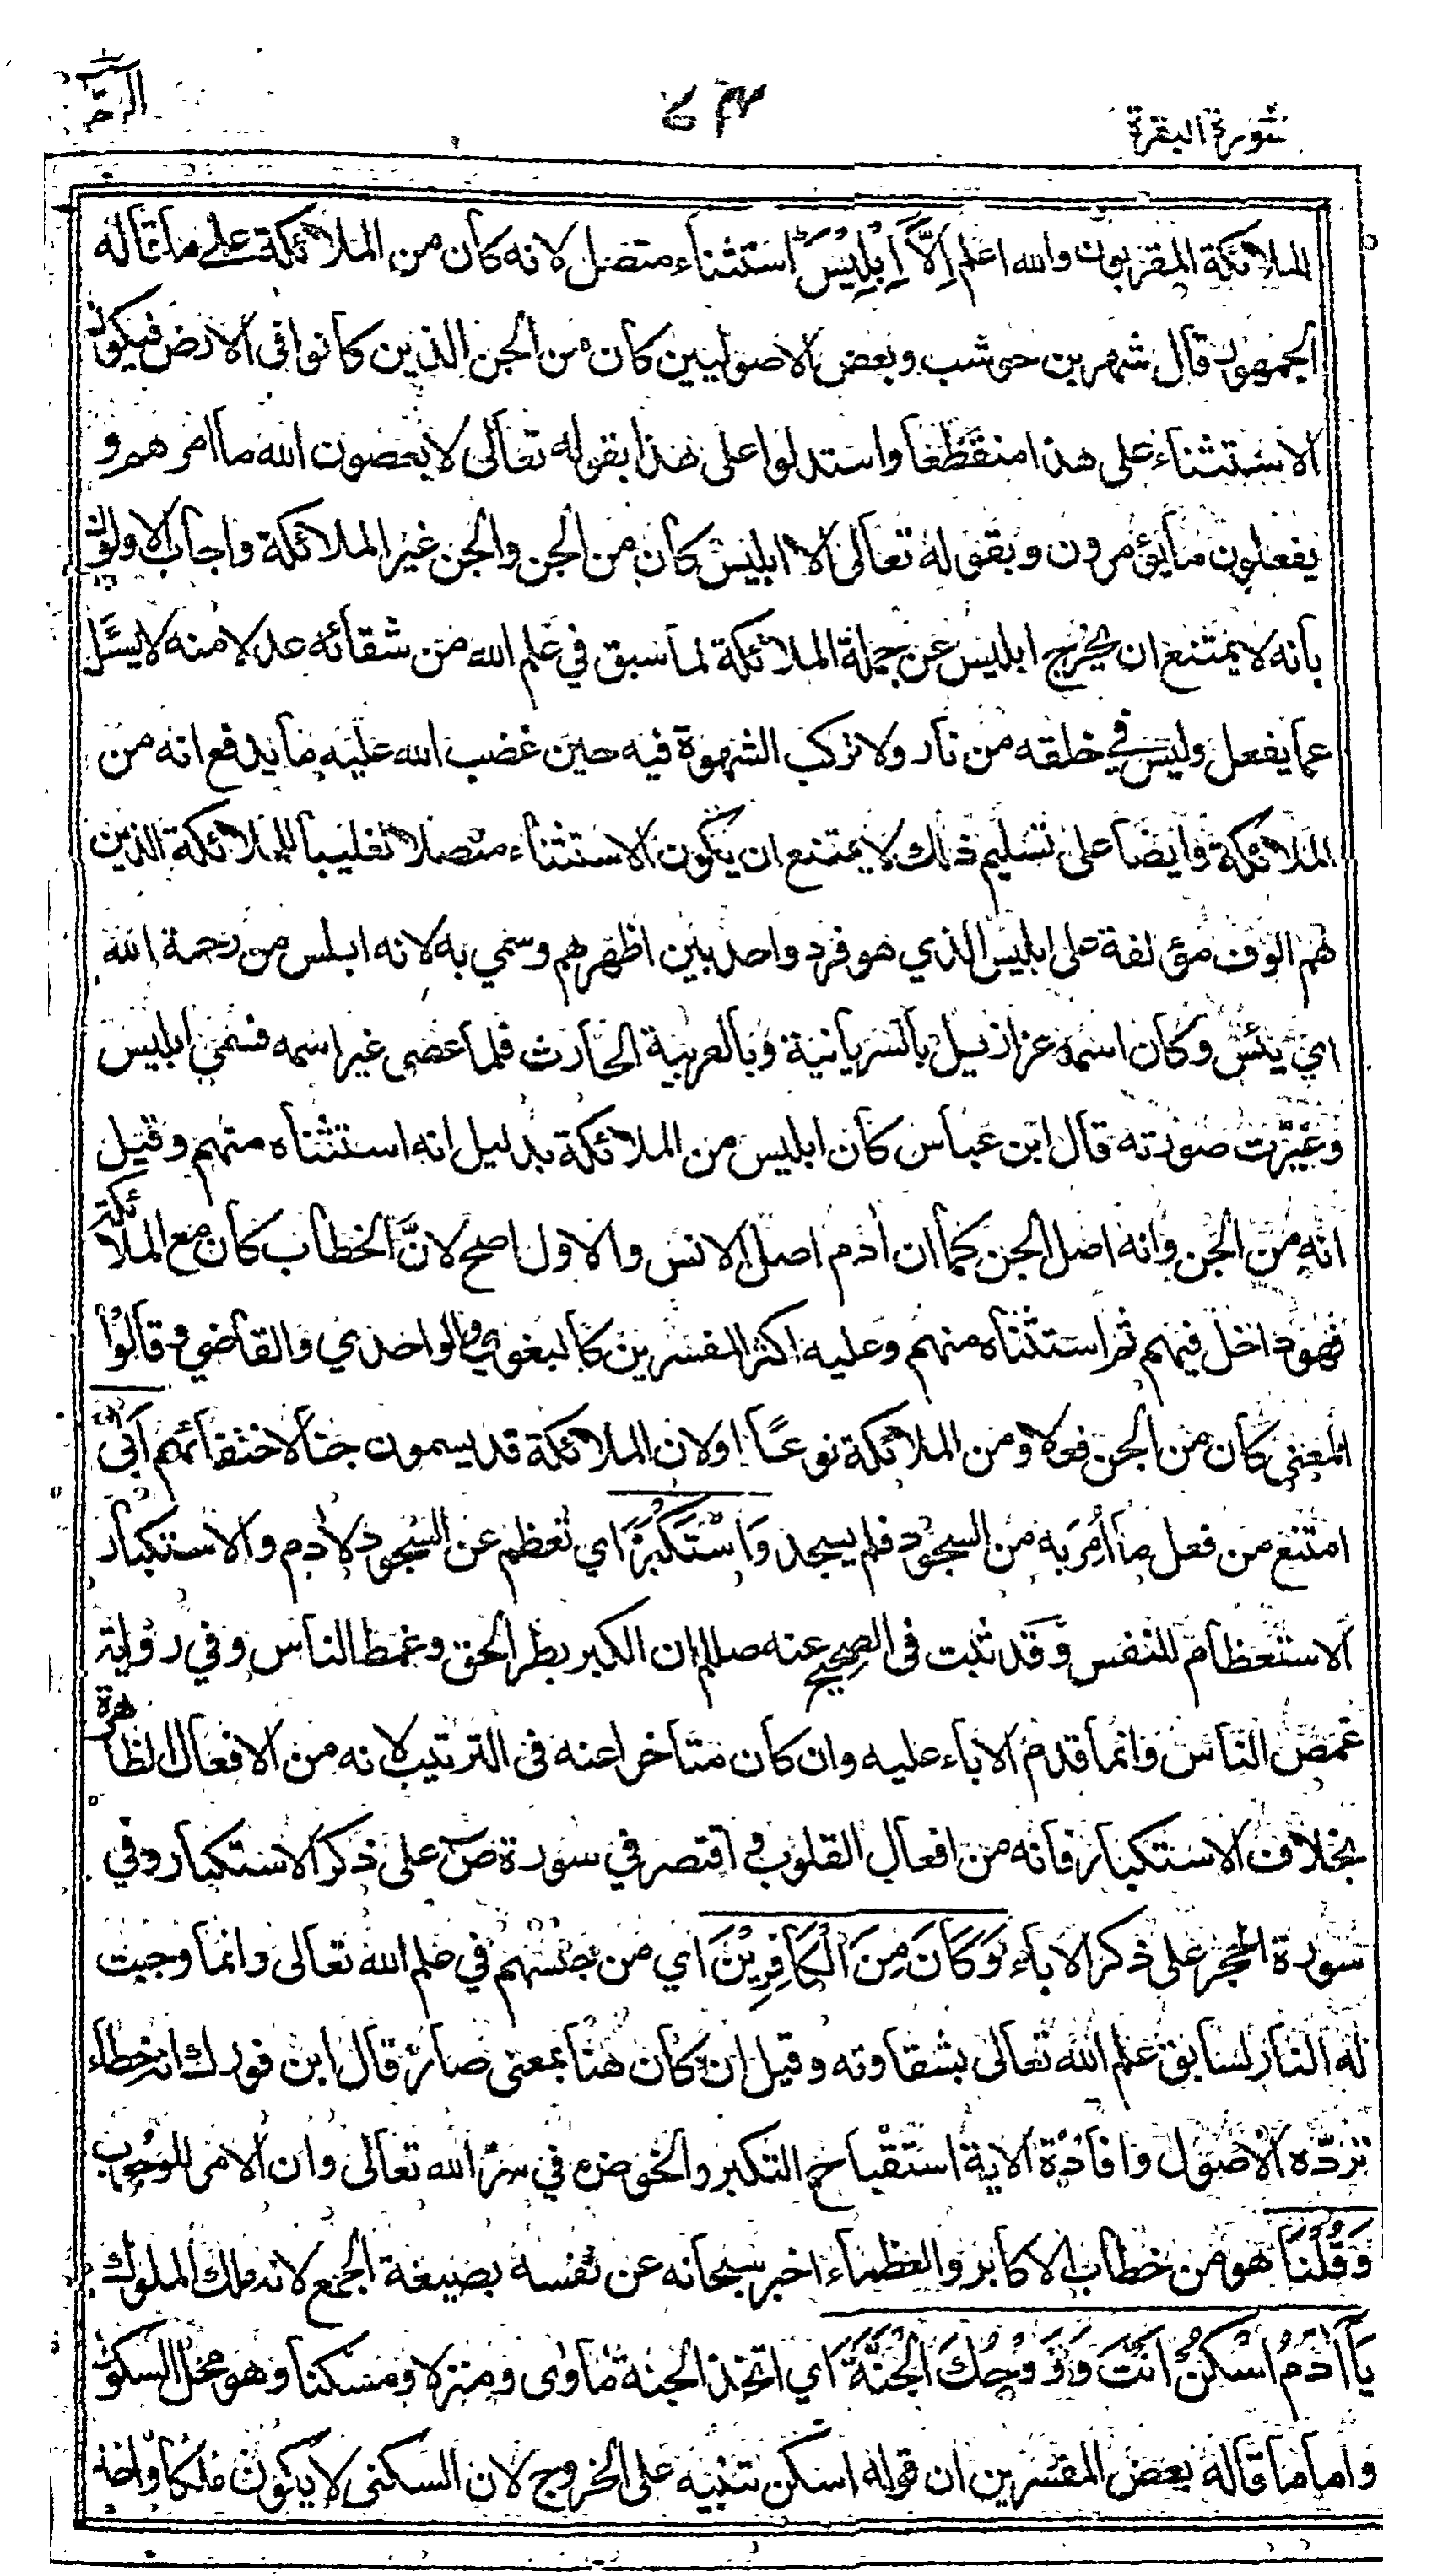 سورة البقرة ٧٤ الٓمٓ
الملائكة المقربون والله اعلم اِلَّا اِبْلِيْسَ استثناء متصل لانه كان من الملائكة على ما قاله
الجمهور قال شهر بن حوشب وبعض الاصوليين كان من الجن الذين كانوا فى الارض فيكون
الاستثناء على هذا منقطعا واستدلوا على هذا بقوله تعالى لا يعصون الله ما امرهم و
يفعلون ما يؤمرون وبقوله تعالى الا ابليس كان من الجن والجن غير الملائكة واجاب الاولون
بانه لا يمتنع ان يخرج ابليس عن جملة الملائكة لما سبق في علم الله من شقائه عدلا منه لا يسئل
عما يفعل وليس في خلقه من نار ولا تركب الشهوة فيه حين غضب الله عليه ما يدفع انه من
الملائكة وايضا على تسليم ذلك لا يمتنع ان يكون الاستثناء متصلا تغليبا للملائكة الذين
هم الوف مؤلفة على ابليس الذي هو فرد واحد بين اظهرهم وسمي به لانه ابلس من رحمة الله
اي يئس وكان اسمه عزازيل بالسريانية وبالعربية الحارث فلما عصى غير اسمه فسمي ابليس
وغيّرت صورته قال ابن عباس كان ابليس من الملائكة بدليل انه استثناه منهم وقيل
انه من الجن وانه اصل الجن كما ان أدم اصل الانس والاول اصح لانّ الخطاب كان مع الملائكة
فهو داخل فيهم ثم استثناه منهم وعليه اكثر المفسرين كالبغوي والواحدي والقاضي وقالوا
المعنى كان من الجن فعلا ومن الملائكة نوعا اولان الملائكة قد يسمون جنا لاختفائهم اَبٰى اي
امتنع من فعل ما اُمِرَ به من السجود فلم يسجد وَاسْتَكْبَرَ اي تعظم عن السجود لأدم والاستكبار
الاستعظام للنفس وقد ثبت فى الصحيح عنه صللم ان الكبر بطر الحق وغمط الناس وفي رواية
غمص الناس وانما قدم الاباء عليه وان كان متاخرا عنه فى الترتيب لانه من الافعال الظاهرة
بخلاف الاستكبار فانه من افعال القلوب و اقتصر في سورة صٓ على ذكر الاستكبار وفي
سورة الحجر على ذكر الاباء وَكَانَ مِنَ الْكَافِرِيْنَ اي من جنسهم في علم الله تعالى وانما وجبت
له النار لسابق علم الله تعالى بشقاوته وقيل ان كان هنا بمعنى صار قال ابن فورك انه خطاء
تردّه الاصول وافادة الاية استقباح التكبر والخوض في سرّ الله تعالى وان الامر للوجوب
وَقُلْنَا هو من خطاب الاكابر والعظماء اخبر سبحانه عن نفسه بصيغة الجمع لانه ملك الملوك
يَآ اٰدَمُ اسْكُنْ اَنْتَ وَزَوْجُكَ الْجَنَّةَ اي اتخذ الجنة مأوى ومنزلا ومسكنا وهو محل السكون
واما ما قاله بعض المفسرين ان قوله اسكن تنبيه على الخروج لان السكنى لا يكون ملكا واخذ